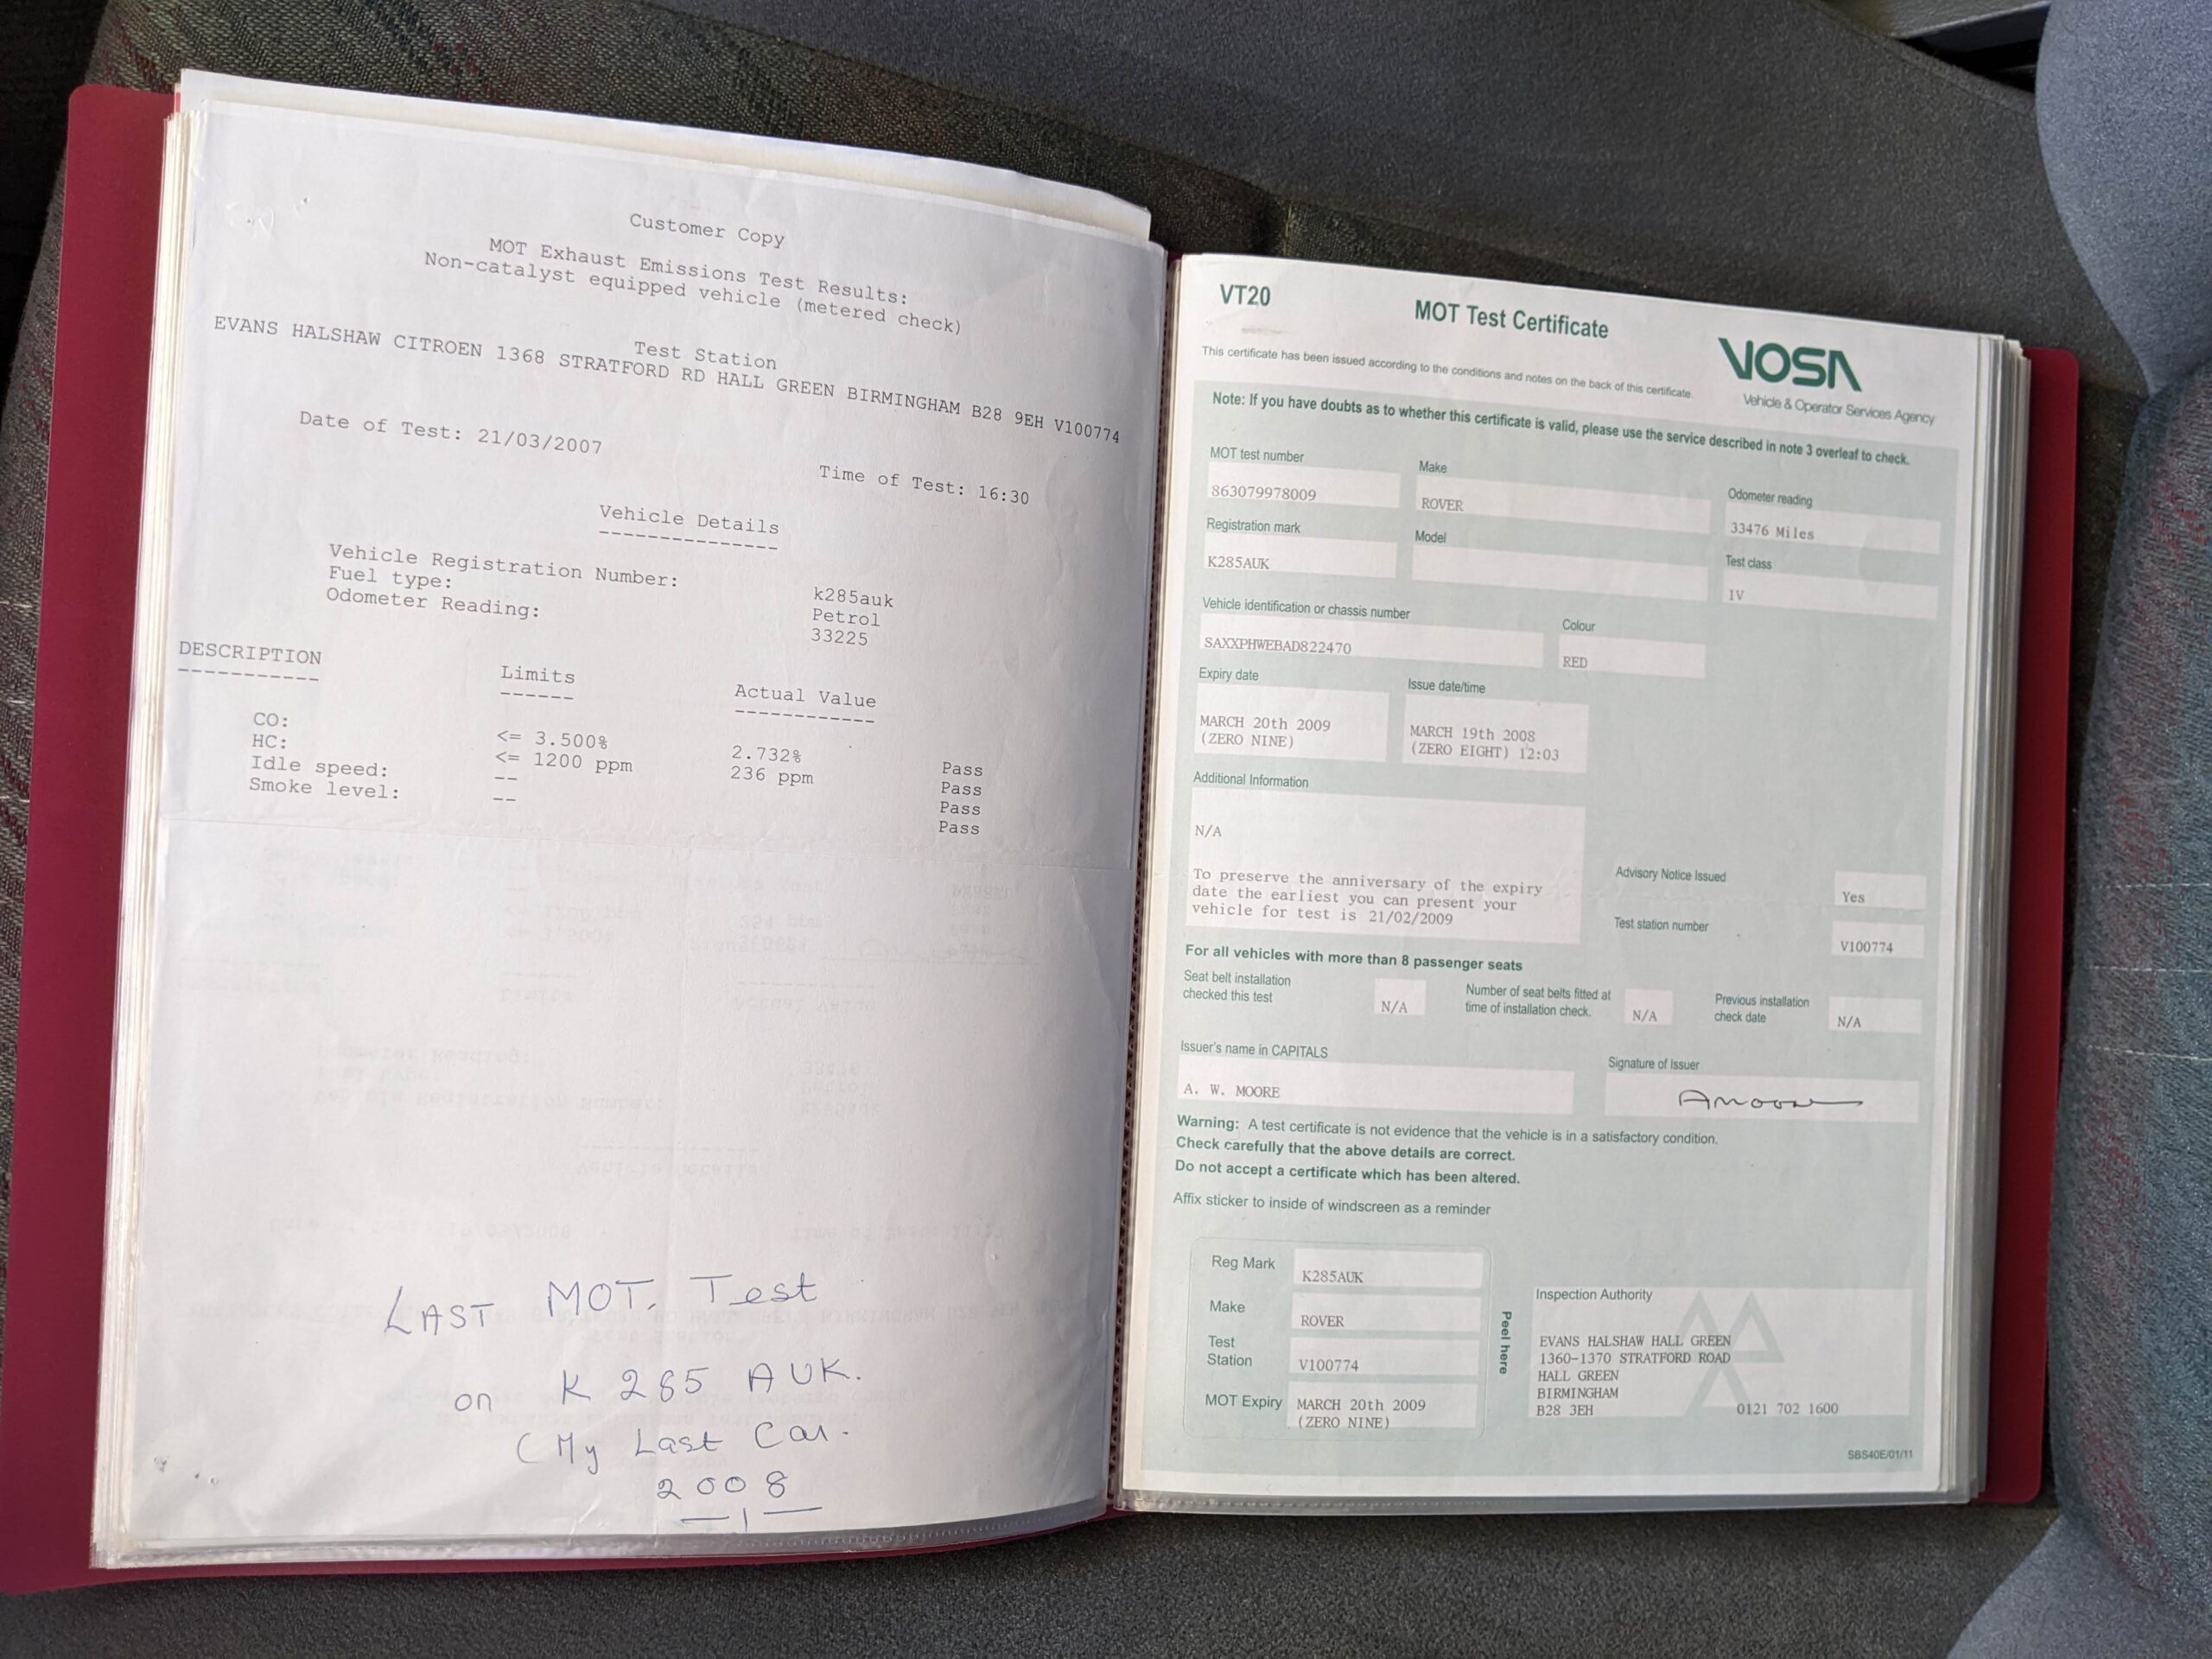 Customer Copy
MOT Exhaust Emissions Test Results:
Non-catalyst equipped vehicle (metered check)
Test Station
EVANS HALSHAW CITROEN 1368 STRATFORD RD HALL GREEN BIRMINGHAM B28 9EH V100774
Date of Test: 21/03/2007 Time of Test: 16:30
Vehicle Details
---------------
Vehicle Registration Number: k285auk
Fuel type: Petrol
Odometer Reading: 33225
DESCRIPTION Limits Actual Value
----------- ------ ------------
CO: <= 3.500% 2.732% Pass
HC: <= 1200 ppm 236 ppm Pass
Idle speed: -- Pass
Smoke level: -- Pass
LAST MOT. Test
on K 285 AUK.
(My Last Car.
2008
VT20
MOT Test Certificate
VOSA
Vehicle & Operator Services Agency
This certificate has been issued according to the conditions and notes on the back of this certificate.
Note: If you have doubts as to whether this certificate is valid, please use the service described in note 3 overleaf to check.
MOT test number Make Odometer reading
863079978009 ROVER 33476 Miles
Registration mark Model Test class
K285AUK IV
Vehicle identification or chassis number Colour
SAXXPHWEBAD822470 RED
Expiry date Issue date/time
MARCH 20th 2009 MARCH 19th 2008
(ZERO NINE) (ZERO EIGHT) 12:03
Additional Information
N/A
To preserve the anniversary of the expiry
date the earliest you can present your
vehicle for test is 21/02/2009
Advisory Notice Issued Yes
Test station number V100774
For all vehicles with more than 8 passenger seats
Seat belt installation
checked this test N/A
Number of seat belts fitted at
time of installation check. N/A
Previous installation
check date N/A
Issuer's name in CAPITALS Signature of Issuer
A. W. MOORE AMoore
Warning: A test certificate is not evidence that the vehicle is in a satisfactory condition.
Check carefully that the above details are correct.
Do not accept a certificate which has been altered.
Affix sticker to inside of windscreen as a reminder
Reg Mark K285AUK
Make ROVER
Test
Station V100774
MOT Expiry MARCH 20th 2009
(ZERO NINE)
Peel here
Inspection Authority
EVANS HALSHAW HALL GREEN
1360-1370 STRATFORD ROAD
HALL GREEN
BIRMINGHAM
B28 3EH 0121 702 1600
SBS40E/01/11